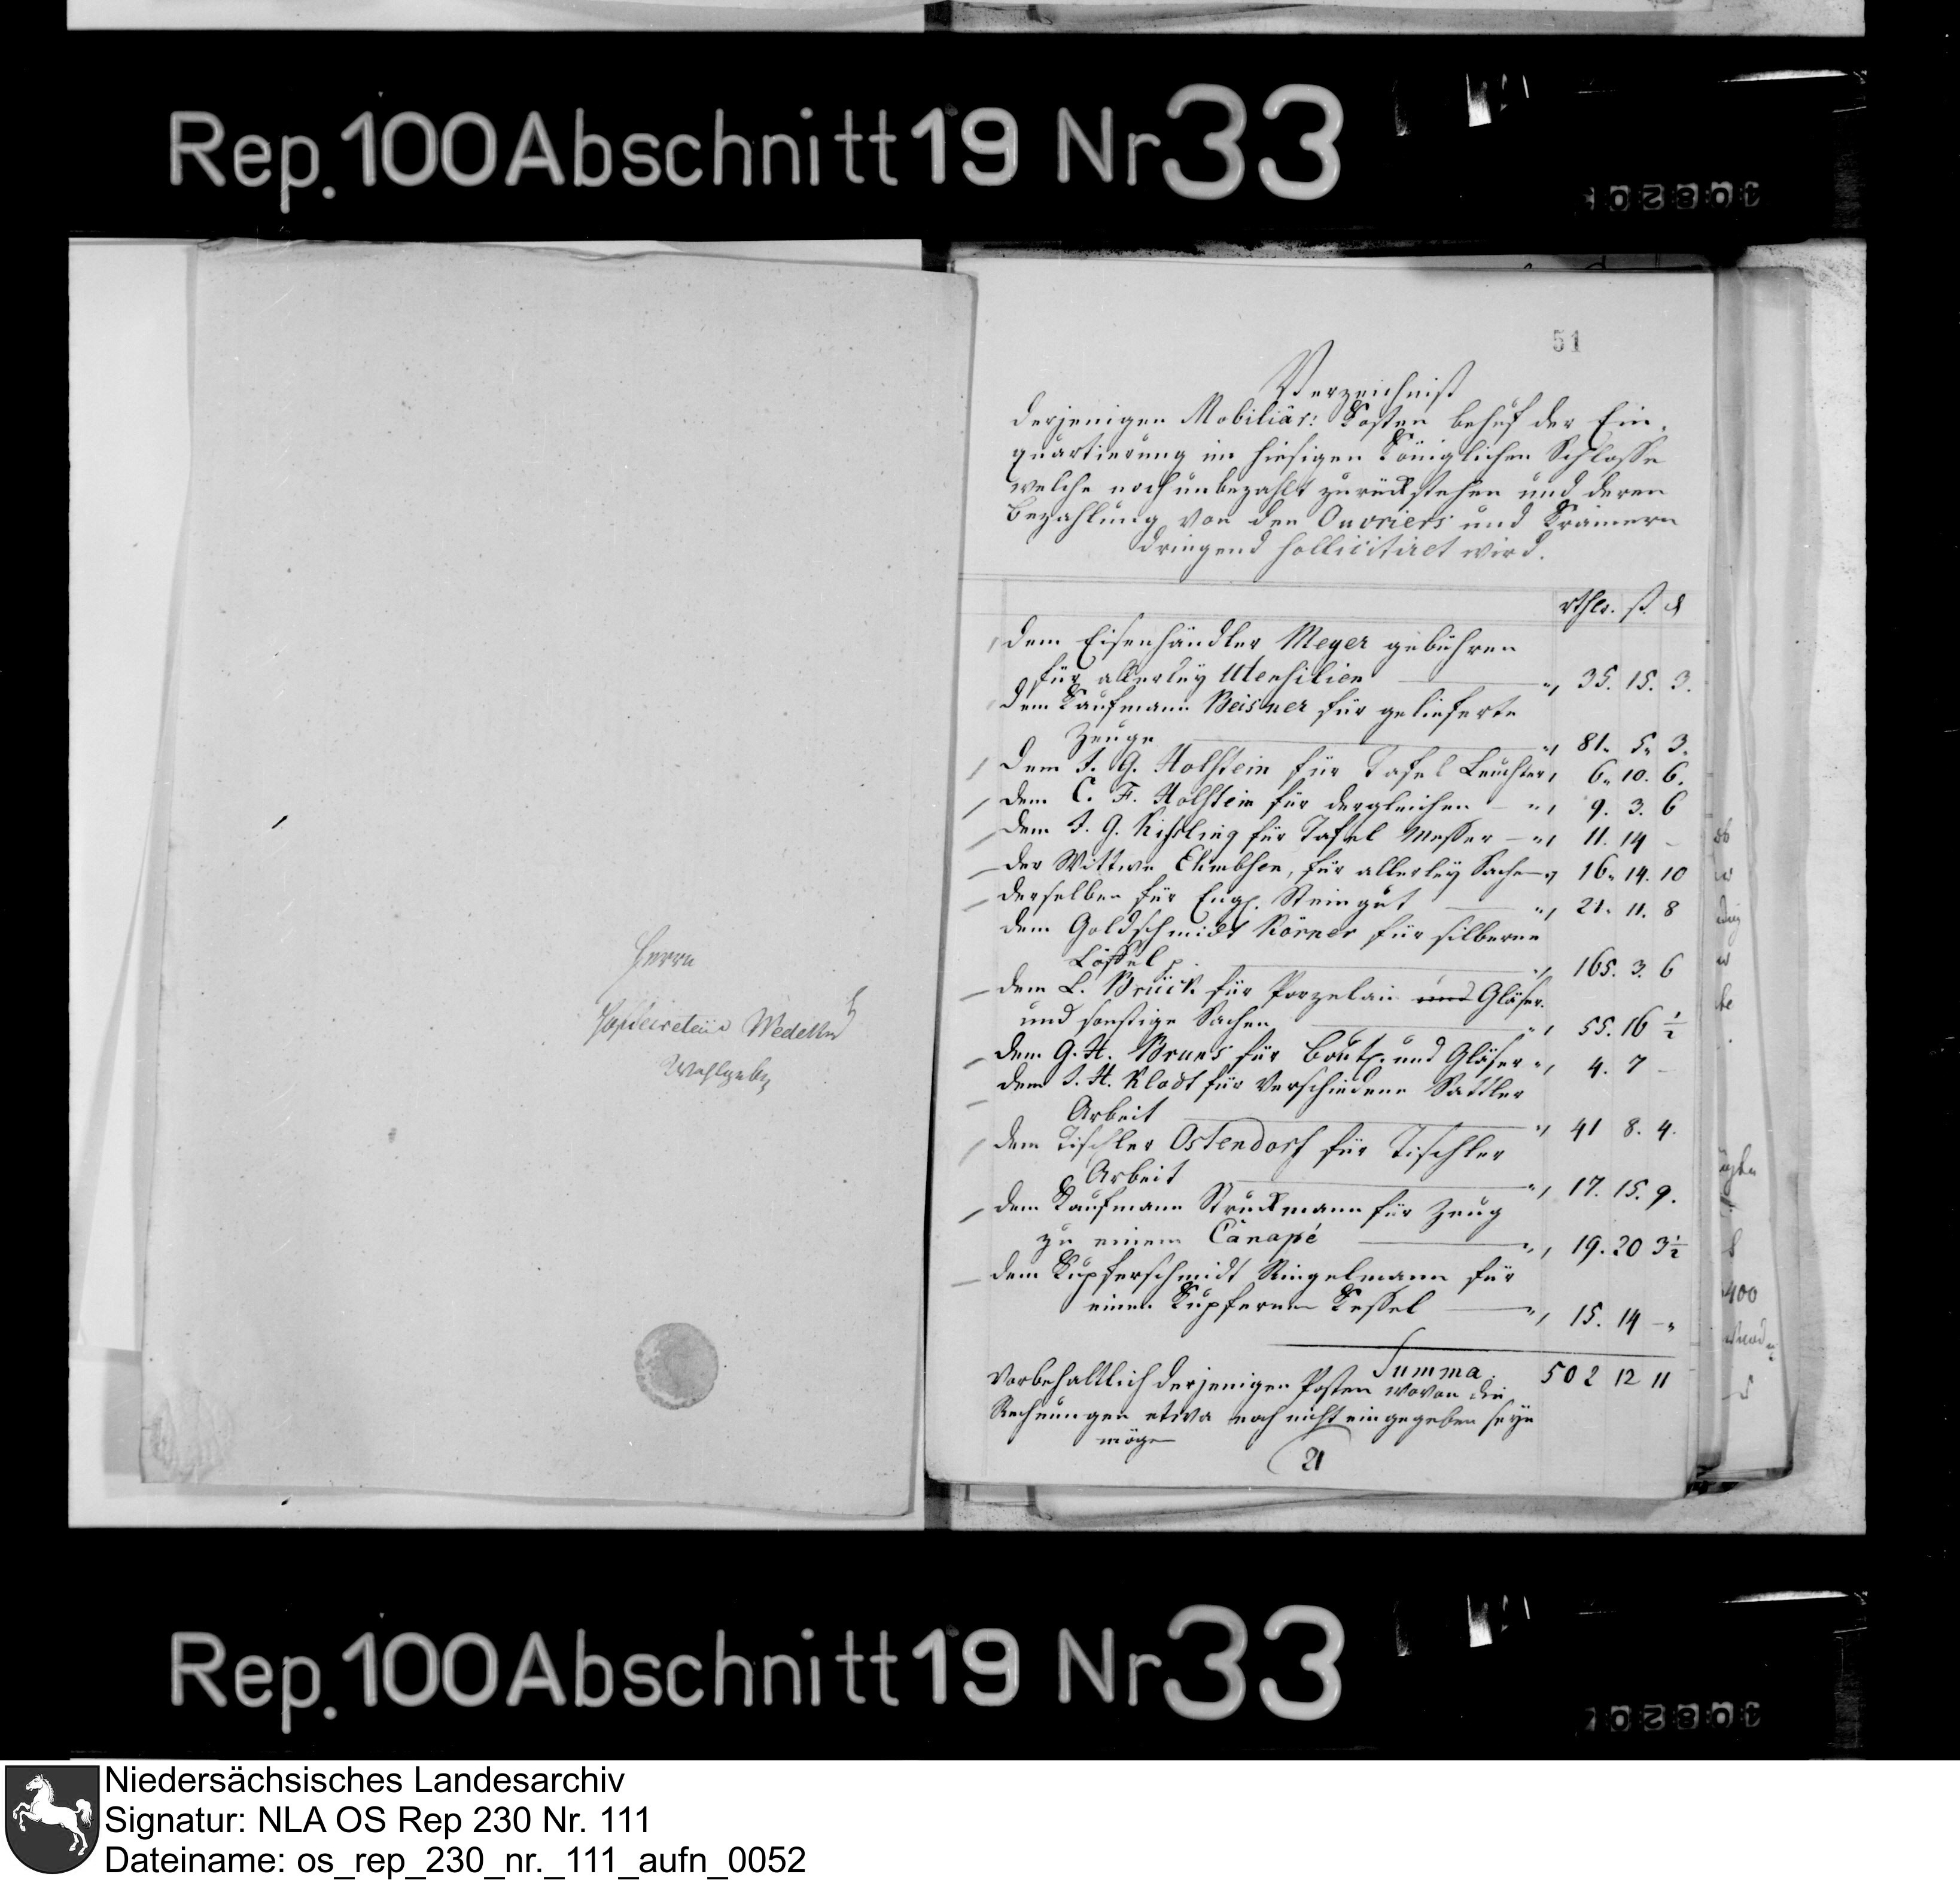 Rep. 100 Abschnitt 19 Nr 33
Herrn
Wedekind
Wohlgeb.
51
Verzeichniß
derjenigen Mobiliär: Kosten behuf der Ein-
quartierung im hiesigen Königlichen Schlosse
welche noch unbezahlt zurückstehen und deren
Bezahlung von den Ouvriers und Krämern
dringend sollicitiret wird.
rthlr. ß. d
dem Eisenhändler Meyer gebühren
für allerley Utensilien " 35. 15. 3.
dem Kaufmann Beisner für gelieferte
Zeuge " 81. 5. 3.
dem J. G. Holstein für Tafel Leuchter 6. 10. 6.
dem C. F. Holstein für dergleichen " 9. 3. 6
dem J. G. Kißling für Tafel Messer " 11. 14 -
der Wittwe Ehmbsen, für allerley Sachen 16. 14. 10
derselben für Engl. Steingut " 21. 11. 8
dem Goldschmidt Körner für silberne
Löffel " 165. 3. 6
dem L. Brück für Porzelain und Gläser
und sonstige Sachen " 55. 16 ½
dem G. H. Bruns für Bout. und Gläser " 4. 7 -
dem J. H. Klodt für verschiedene Sattler
Arbeit " 41 8. 4.
dem Tischler Ostendorf für Tischler
Arbeit " 17. 15. 9.
dem Kaufmann Struckmann für Zeug
zu einem Canapé " 19. 20 3½
dem Kupferschmidt Ringelmann für
einen Kupfernen Kessel " 15. 14 -
Summa. 502 12 11
Vorbehaltlich derjenigen Posten wovon die
Rechnungen etwa noch nicht eingegeben seyn
mögen
21
400
Rep. 100 Abschnitt 19 Nr 33
Niedersächsisches Landesarchiv
Signatur: NLA OS Rep 230 Nr. 111
Dateiname: os_rep_230_nr._111_aufn_0052